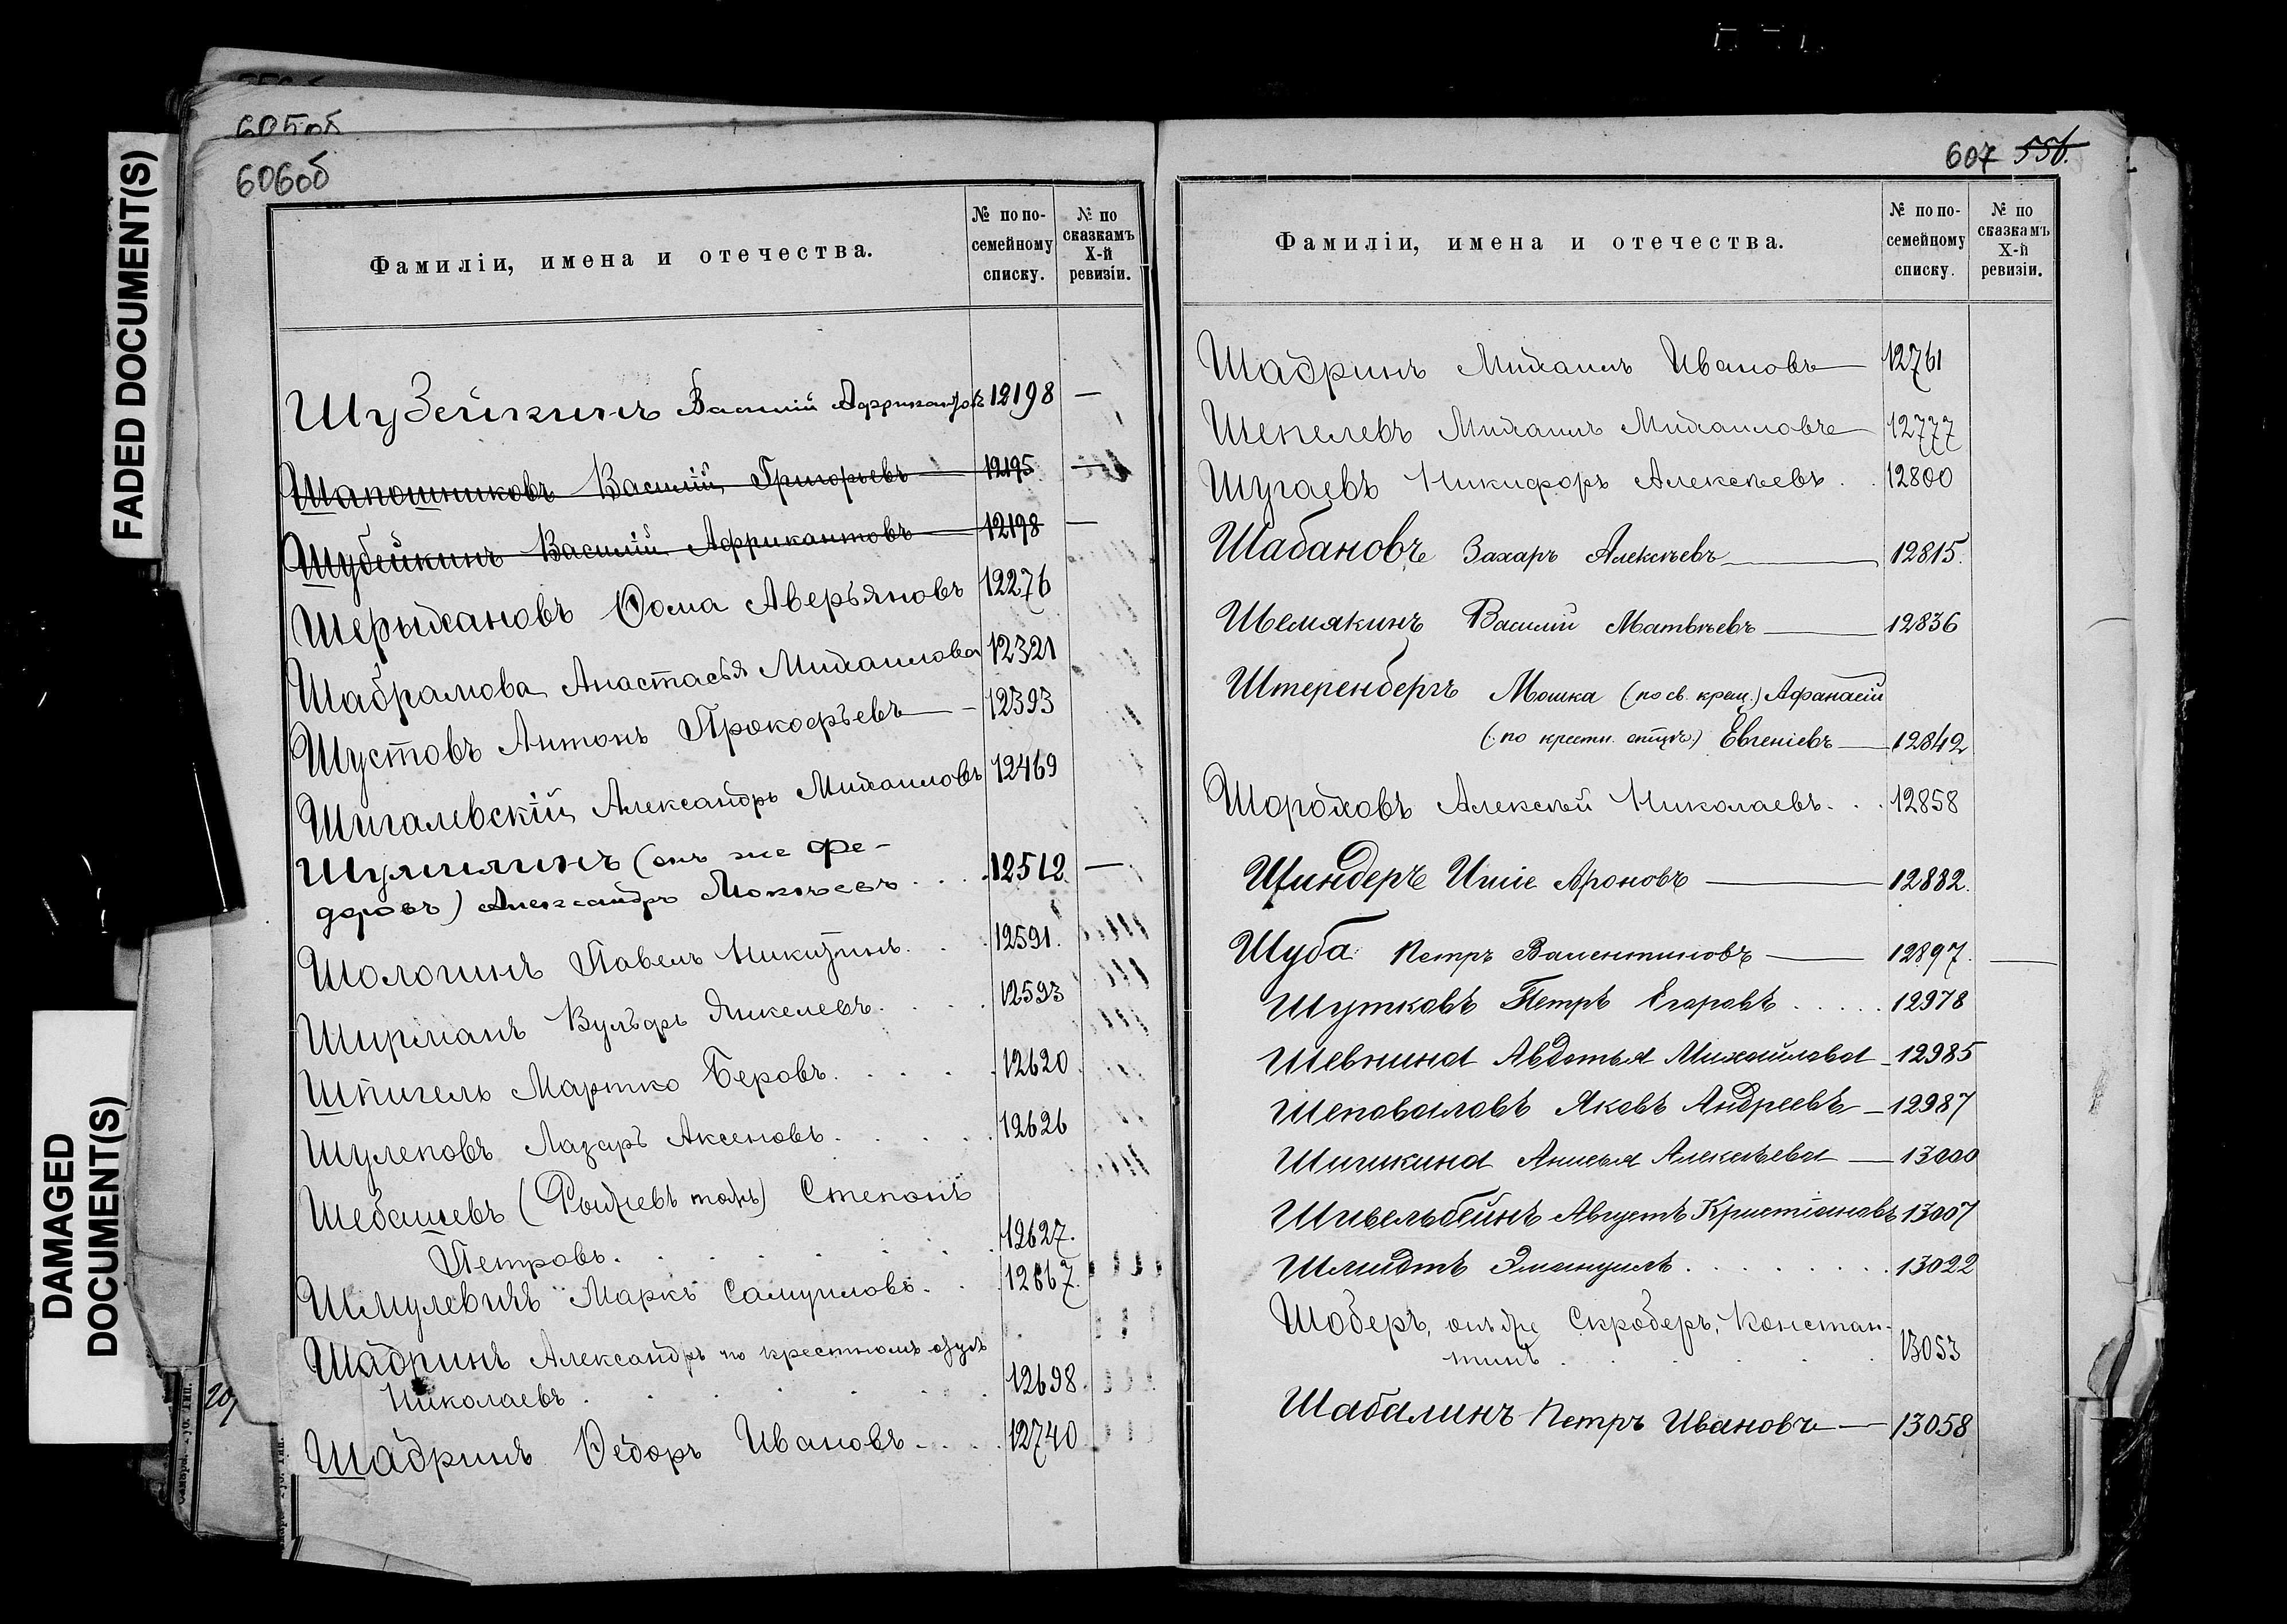 FADED DOCUMENT(S)
DAMAGED
DOCUMENT(S)
605об
606об
Фамиліи, имена и отечества.
№ по по-
семейному
списку.
№ по
сказкамъ
X-й
ревизіи.
Шубейкинъ Василій Африкантовъ 12198 —
Шапошниковъ Василій Григорьевъ 12195 —
Шубейкинъ Василій Африкантовъ 12198 —
Шерыхановъ Ѳома Аверьяновъ 12276
Шабрамова Анастасья Михаилова 12321
Шустовъ Антонъ Прокофьевъ — 12393
Шигалевскій Александръ Михаиловъ 12469
Шумилинъ (онъ же Фе-
доровъ) Александръ Мокѣевъ . . . 12512 —
Шологинъ Павелъ Никитинъ . . 12591.
Ширманъ Вульфъ Янкелевъ . . . 12593
Шпигель Мартко Беровъ . . . . 12620
Шулеповъ Лазарь Аксеновъ . . . . 12626
Шебашевъ ( тожъ) Степанъ
Петровъ . . . . . . 12627.
Шмулевичъ Маркъ Самуиловъ . . . 12667.
Шадринъ Александръ по крестному отцу
Николаевъ . . . . . . 12698.
Шадринъ Ѳедоръ Ивановъ . . . . 12740
607 556.
Фамиліи, имена и отечества.
№ по по-
семейному
списку.
№ по
сказкамъ
X-й
ревизіи.
Шадринъ Михаилъ Ивановъ — 12761
Шепелевъ Михаилъ Михаиловъ — 12777
Шугаевъ Никифоръ Алексѣевъ . . 12800
Шабановъ Захаръ Алексѣевъ — 12815.
Шемякинъ Василій Матвѣевъ — 12836
Штеренбергъ Мошка (по св. крещ.) Афанасій
(по крестн. отцу.) Евгеніевъ — 12842
Шороховъ Алексѣй Николаевъ . . . 12858
Шиндеръ Ициг Ароновъ — 12882.
Шуба Петръ Валентиновъ — 12897. —
Шутковъ Петръ Егоровъ . . . . . 12978
Шевнина Авдотья Михайлова — 12985
Шеповаловъ Яковъ Андреевъ — 12987
Шишкина Анисья Алексѣева — 13000
Шивельбейнъ Августъ Кристіановъ 13007
Шмидтъ Эмануилъ . . . . . . . . 13022
Шоберъ, онъ же Скроберъ, Констан-
тинъ . . . . . . 13053
Шабалинъ Петръ Ивановъ — 13058